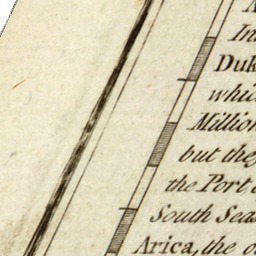 In
Duk
whi
Million
but the
the Port
South Seas
Arica, the o